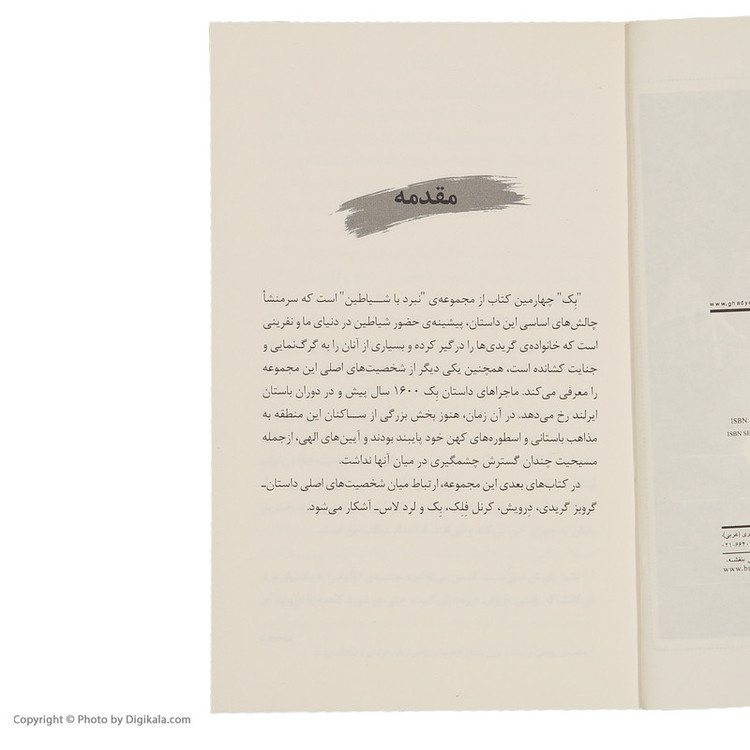 مقدمه
"بِک" چهارمین کتاب از مجموعه‌ی "نبرد با شـیاطین" است که سرمنشأ
چالش‌های اساسی این داستان، پیشینه‌ی حضور شیاطین در دنیای ما و نفرینی
است که خانواده‌ی گریدی‌ها را درگیر کرده و بسیاری از آنان را به گرگ‌نمایی و
جنایت کشانده است، همچنین یکی دیگر از شخصیت‌های اصلی این مجموعه
را معرفی می‌کند. ماجراهای داستان بِک ۱۶۰۰ سال پیش و در دوران باستان
ایرلند رخ می‌دهد. در آن زمان، هنوز بخش بزرگی از سـاکنان این منطقه به
مذاهب باستانی و اسطوره‌های کهن خود پایبند بودند و آیین‌های الهی، ازجمله
مسیحیت چندان گسترش چشمگیری در میان آنها نداشت.
در کتاب‌های بعدی این مجموعه، ارتباط میان شخصیت‌های اصلی داستان‌ـ
گروبز گریدی، دِرویش، کرنل فِلِک، بِک و لرد لاس‌ـ آشکار می‌شود.
www.ghady
ISBN:
ISBN SE
ی (غربی)،
۰۲۱-۶۶۴۰
بنفشه،
www.ba
Copyright © Photo by Digikala.com